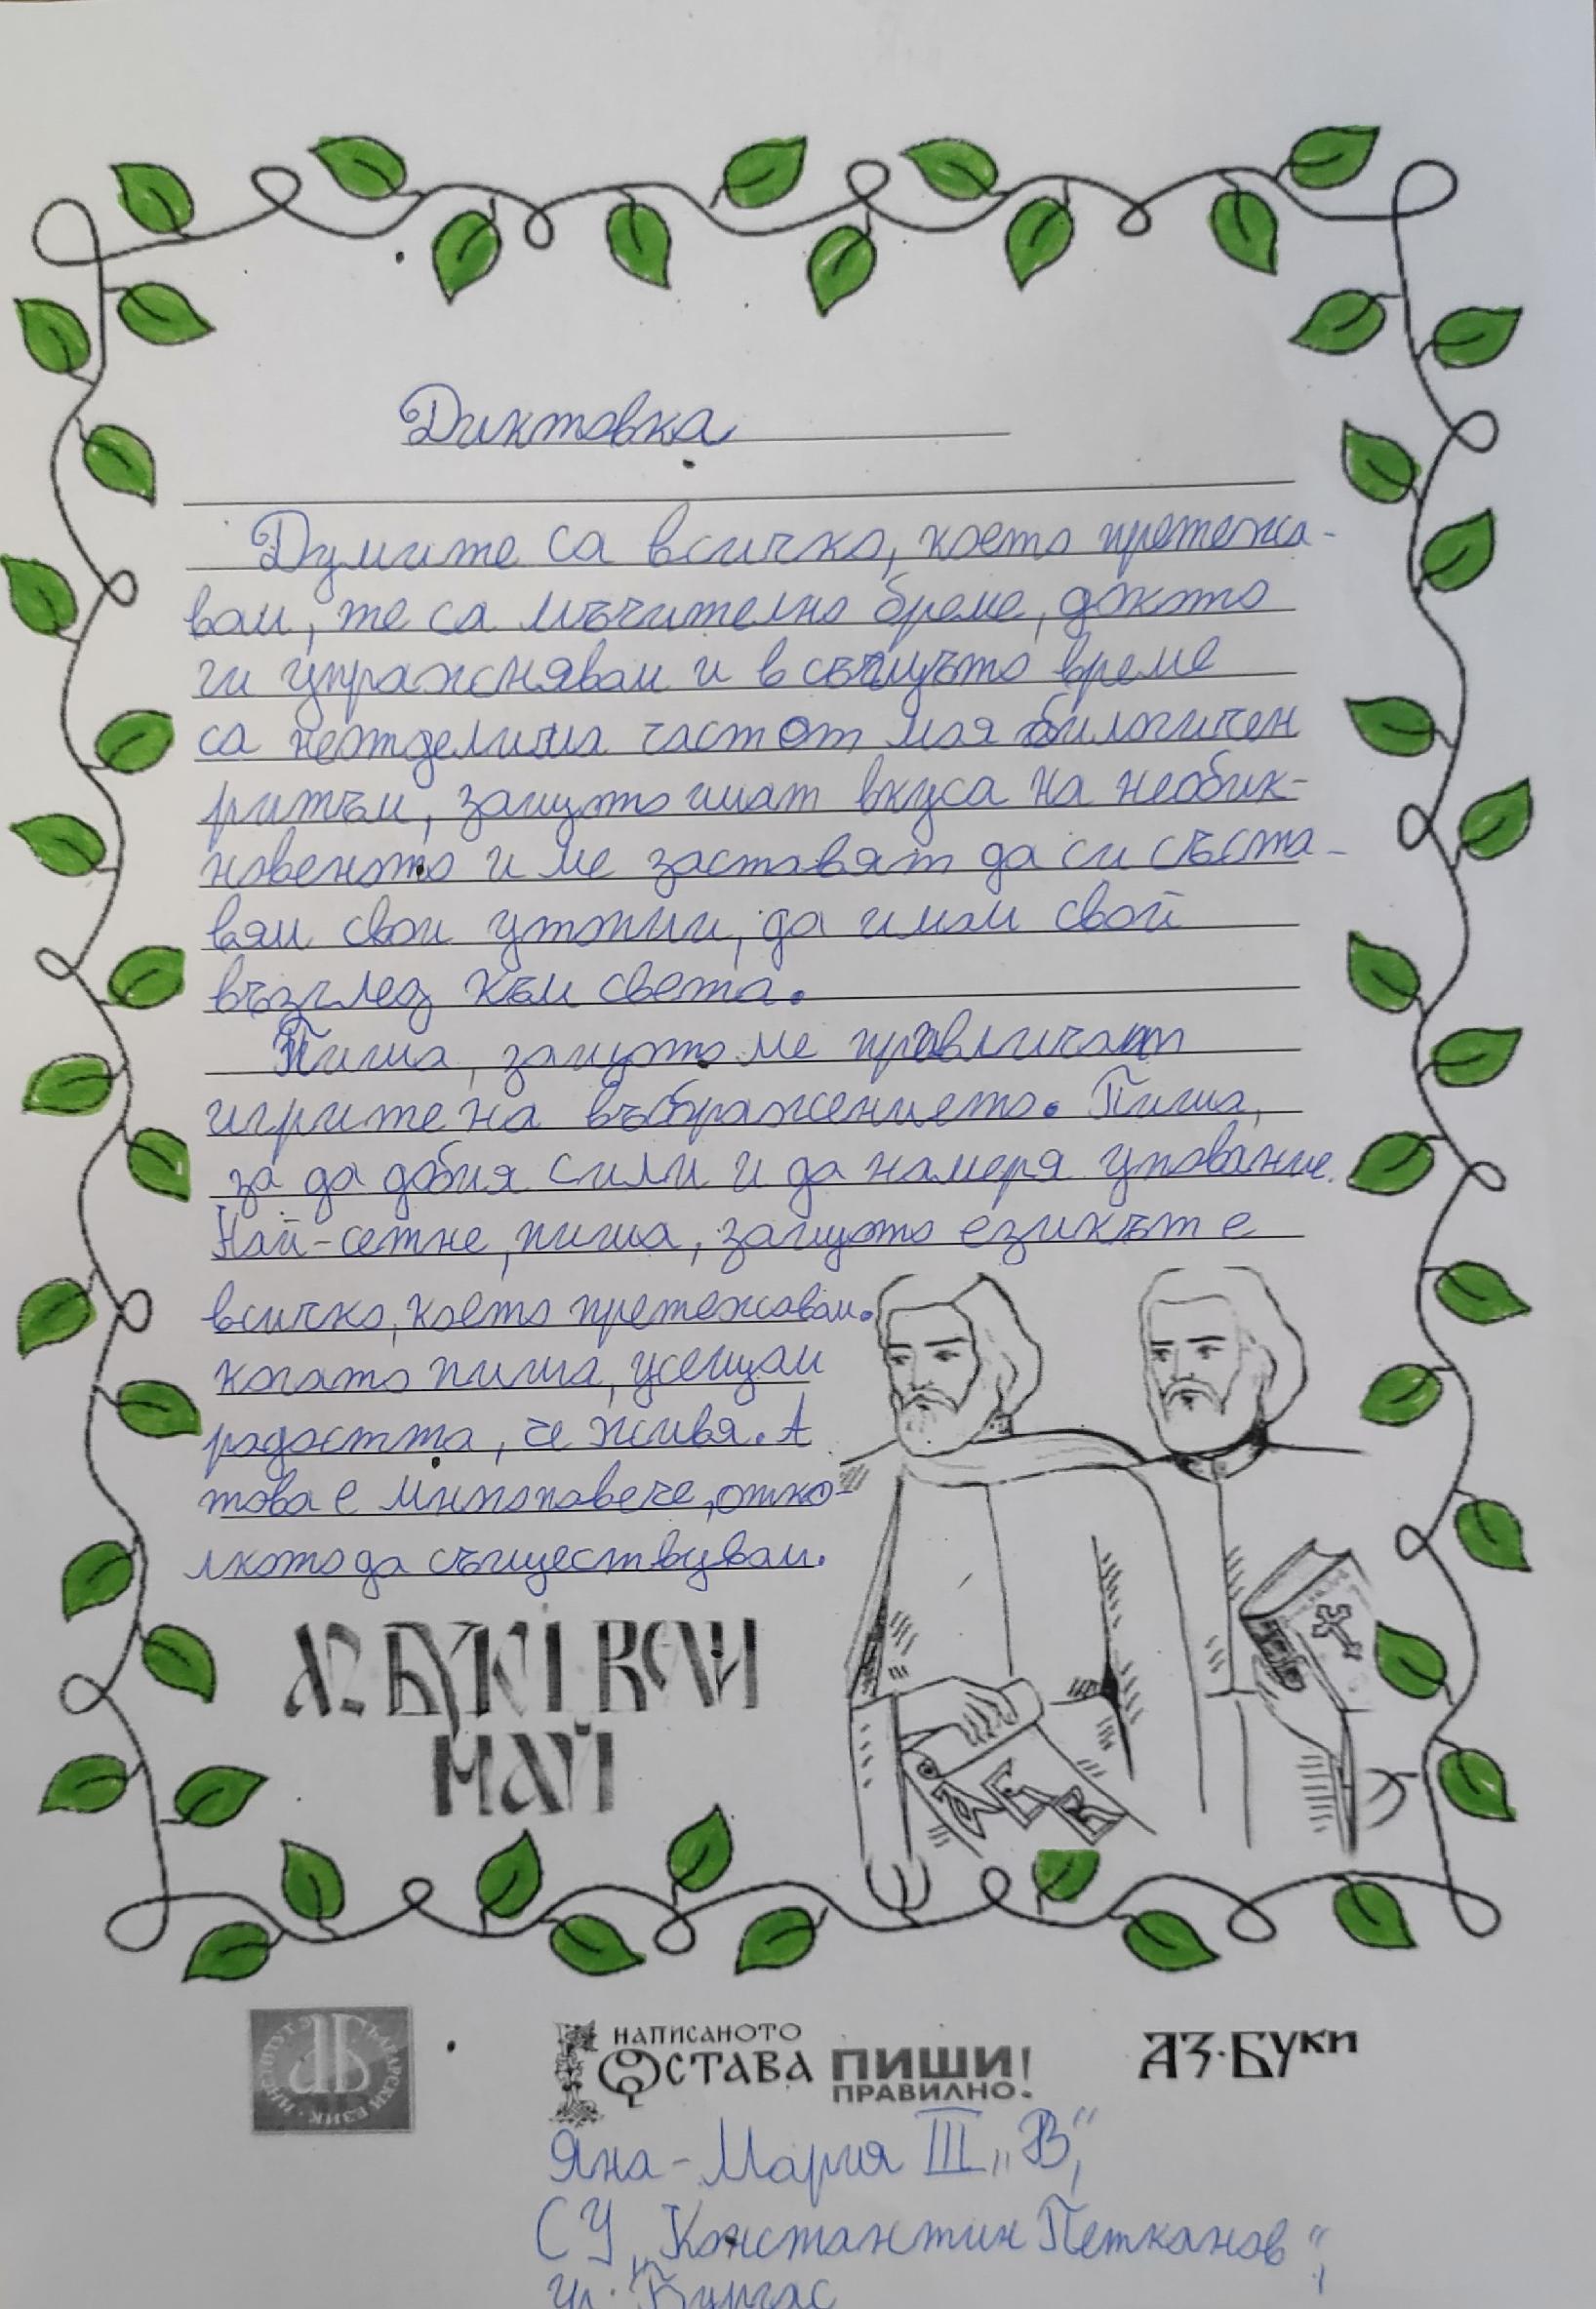 Диктовка
Думите са всичко, което притежа-
вам, те са мъчително бреме, докато
ги упражнявам и в същъто време
са неотделима част от моя билогичен
ритъм, защото имат вкуса на необик-
новеното и ме заставят да си съста-
вям свои утопии, да имам свой
възглед към света.
Пиша, защото ме привличат
игрите на въбражението. Пиша,
за да добия сили и да намеря упование.
Най-сетне, пиша, защото езикът е
всичко, което притежавам.
когато пиша, усещам
радостта, че живя. А
това е многоповече, отко-
лкото да съществувам.
АЗ БУКИ ВЕДИ
МАЙ
ИНСТИТУТ ЗА БЪЛГАРСКИ ЕЗИК
НАПИСАНОТО
ОСТАВА ПИШИ!
ПРАВИЛНО.
АЗ·БУКИ
Яна-Мария III „В“,
СУ „Константин Петканов“,
гр. Бургас